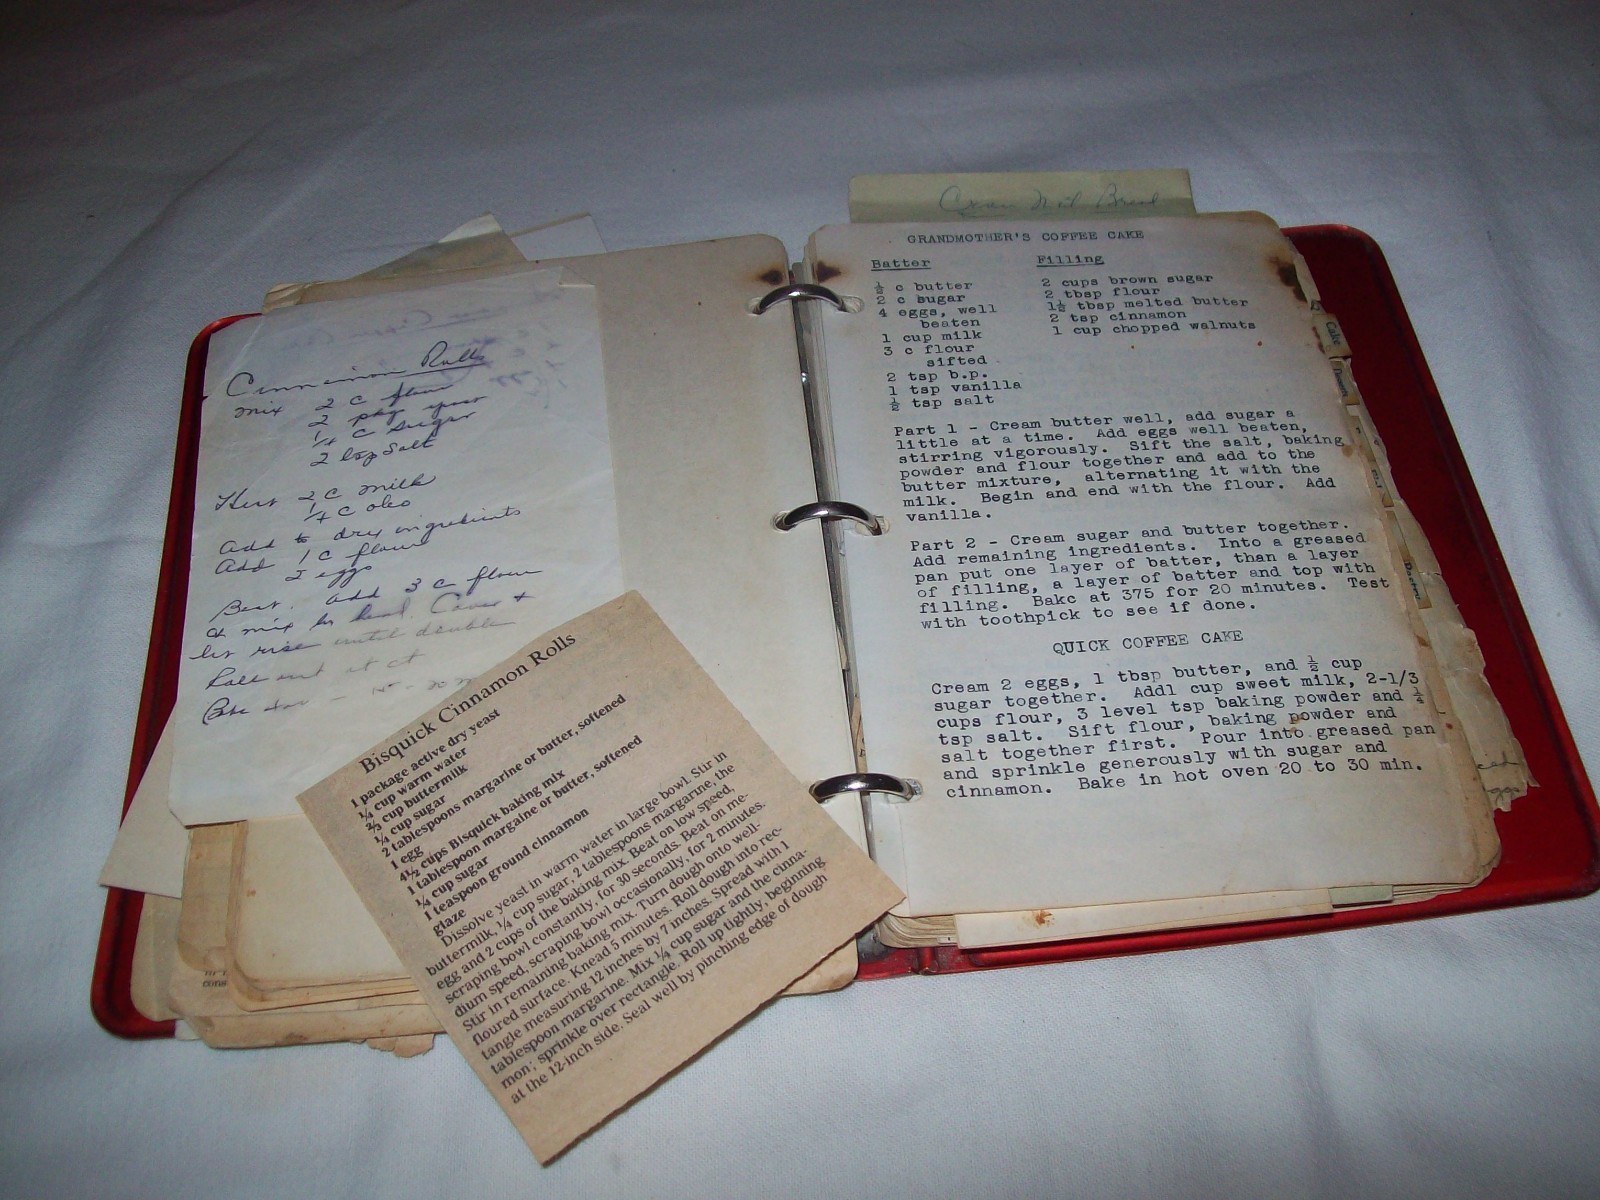 Cinnamon Rolls
mix 2 c flour
2 pkg yeast
1/4 c sugar
2 tsp salt
Heat 2 c milk
1/4 c oleo
add to dry ingredients
add 1 c flour
2 eggs
Beat. add 3 c flour
& mix by hand. Cover +
let rise until double
Roll out
Bisquick Cinnamon Rolls
1 package active dry yeast
¼ cup warm water
⅔ cup buttermilk
¼ cup sugar
2 tablespoons margarine or butter, softened
1 egg
4½ cups Bisquick baking mix
1 tablespoon margaine or butter, softened
¼ cup sugar
1 teaspoon ground cinnamon
glaze
Dissolve yeast in warm water in large bowl. Stir in
buttermilk, ¼ cup sugar, 2 tablespoons margarine, the
egg and 2 cups of the baking mix. Beat on low speed,
scraping bowl constantly, for 30 seconds. Beat on me-
dium speed, scraping bowl occasionally, for 2 minutes.
Stir in remaining baking mix. Turn dough onto well-
floured surface. Knead 5 minutes. Roll dough into rec-
tangle measuring 12 inches by 7 inches. Spread with 1
tablespoon margarine. Mix ¼ cup sugar and the cinna-
mon; sprinkle over rectangle. Roll up tightly, beginning
at the 12-inch side. Seal well by pinching edge of dough
Bread
GRANDMOTHER'S COFFEE CAKE
Batter
½ c butter
2 c sugar
4 eggs, well
beaten
1 cup milk
3 c flour
sifted
2 tsp b.p.
1 tsp vanilla
½ tsp salt
Filling
2 cups brown sugar
2 tbsp flour
1½ tbsp melted butter
2 tsp cinnamon
1 cup chopped walnuts
Part 1 - Cream butter well, add sugar a
little at a time. Add eggs well beaten,
stirring vigorously. Sift the salt, baking
powder and flour together and add to the
butter mixture, alternating it with the
milk. Begin and end with the flour. Add
vanilla.
Part 2 - Cream sugar and butter together.
Add remaining ingredients. Into a greased
pan put one layer of batter, than a layer
of filling, a layer of batter and top with
filling. Bake at 375 for 20 minutes. Test
with toothpick to see if done.
QUICK COFFEE CAKE
Cream 2 eggs, 1 tbsp butter, and ½ cup
sugar together. Addl cup sweet milk, 2-1/3
cups flour, 3 level tsp baking powder and ¼
tsp salt. Sift flour, baking powder and
salt together first. Pour into greased pan
and sprinkle generously with sugar and
cinnamon. Bake in hot oven 20 to 30 min.
Cake